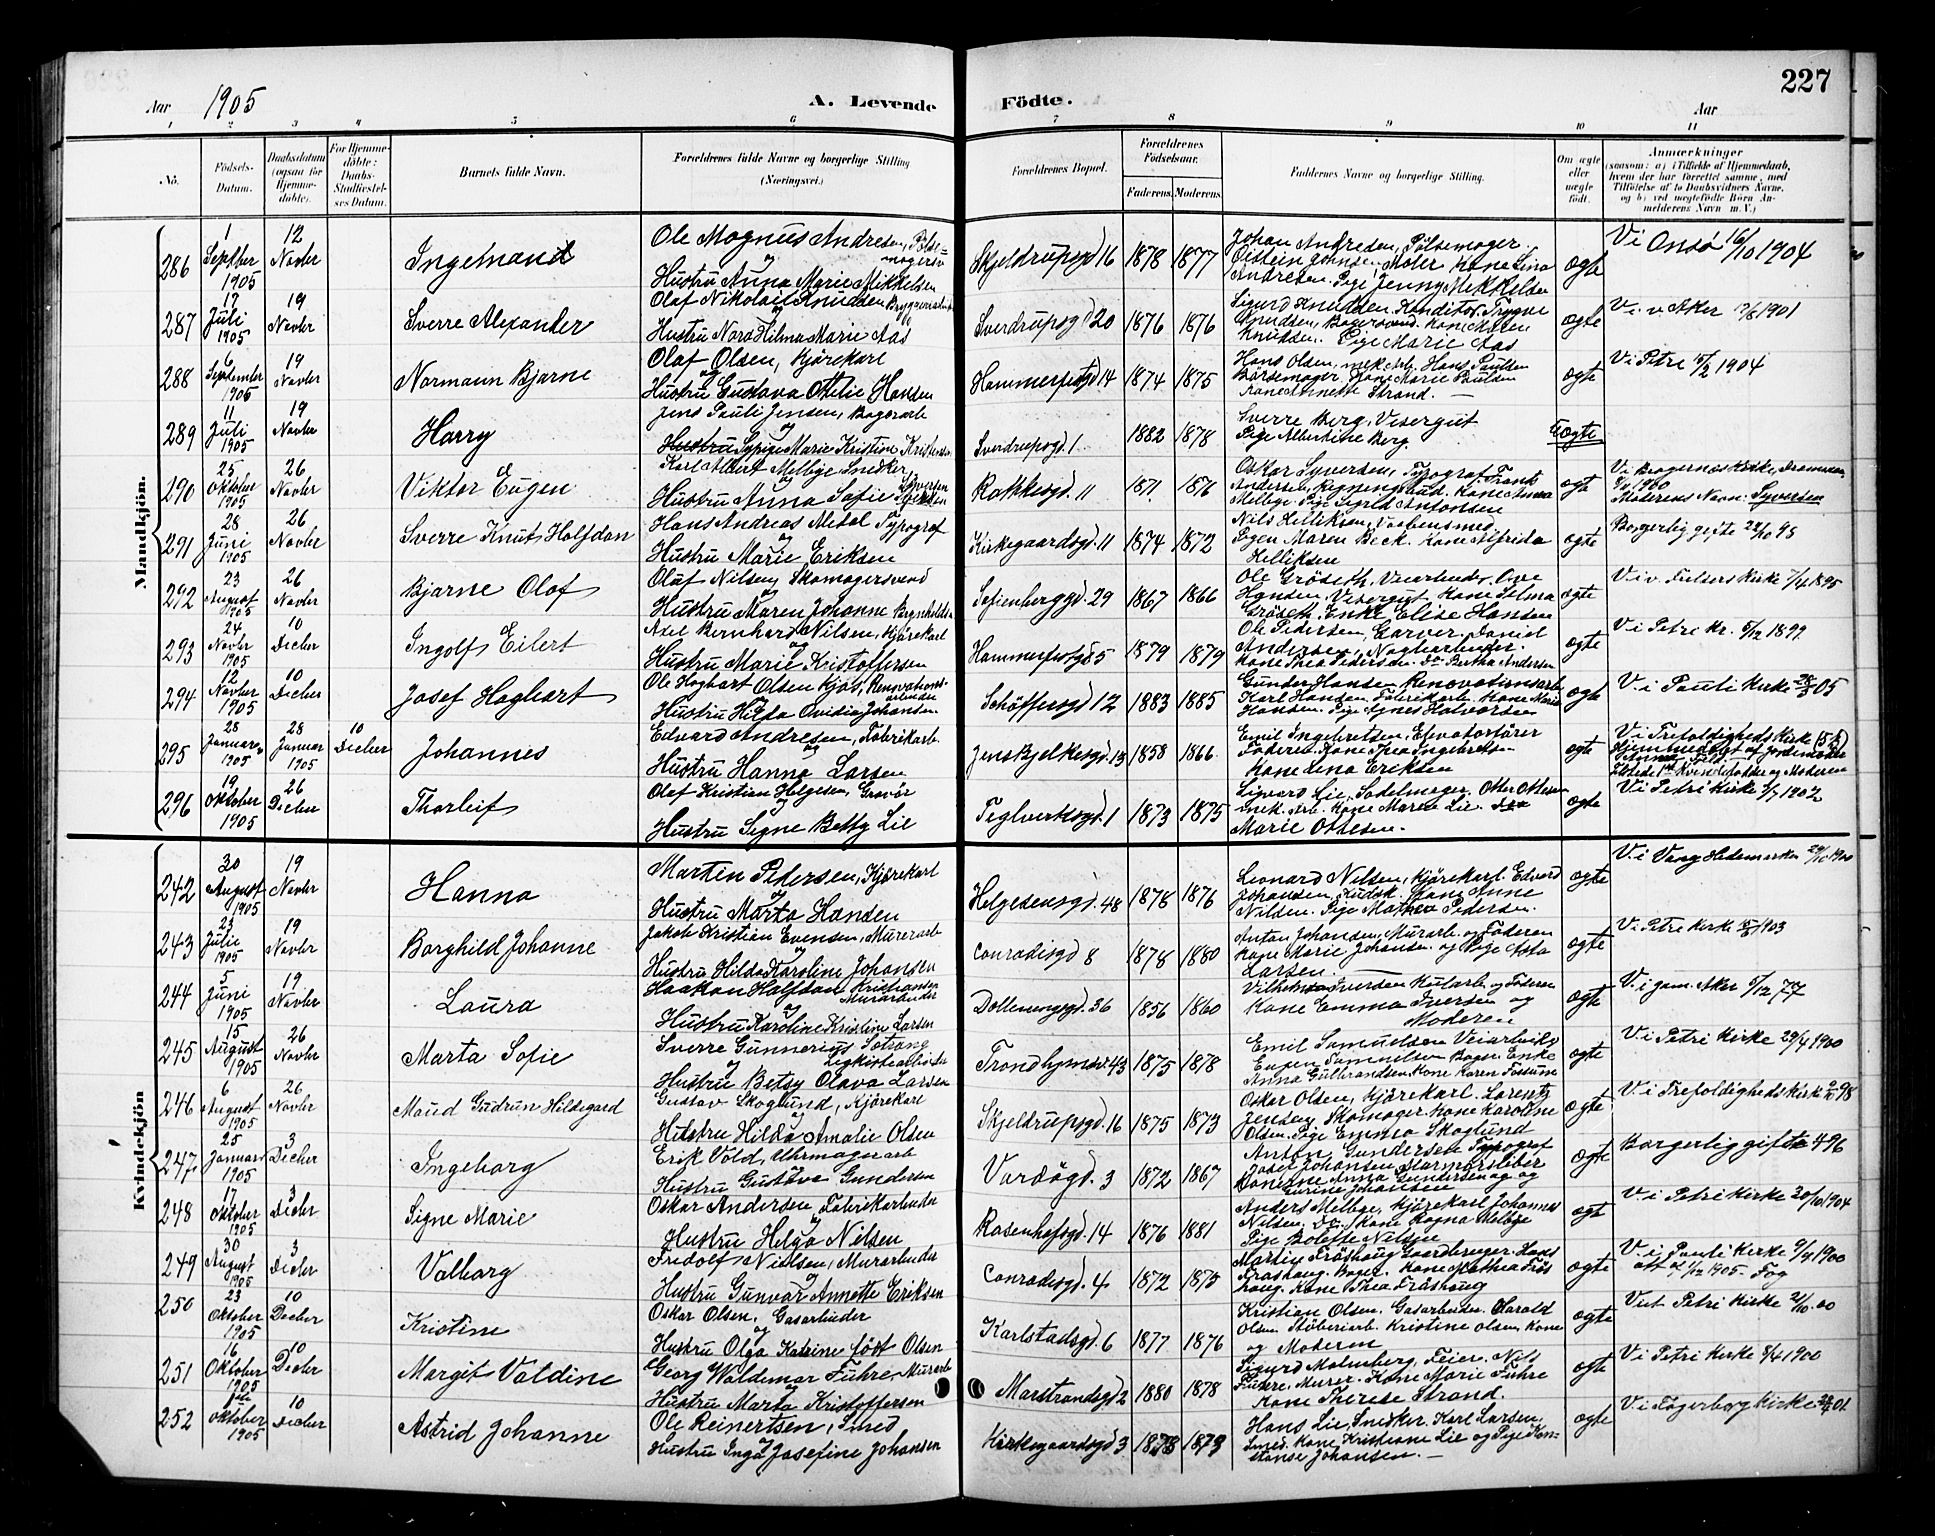 227
Aar 1905 A. Levende Födte. Aar
1 2 3 4 5 6 7 8 9 10 11
No. Födsels-Datum. Daabsdatum (ogsaa for Hjemme-döbte). For Hjemme-döbte: Daabs-Stadfæstel-ses Datum. Barnets fulde Navn. Forældrenes fulde Navne og borgerlige Stilling (Næringsvei.) Forældrenes Bopæl. Forældrenes Födselsaar. Faderens. Moderens. Faddernes Navne og borgerlige Stilling. Om ægte eller uægte födt. Anmærkninger
(saasom: a) i Tilfælde af Hjemmedaab,
hvem der har forrettet samme, med
Tilföielse af to Daabsvidners Navne.
og b) ved uægtefödte Börn An-
melderens Navn m. V.)
Mandkjön.
286
1 Septber 1905
12 Novber
Ingemand
Ole Magnus Andresen, Pölse-magersv
og
Hustru Anna Marie Mikkelsen
Skjeldrupsgd 16 1878 1877
Johan Andresen, Pölsemager.
Öistein Johnsen, Maler Kone Lina
Andresen. Pige Jenny Mikkelsen
ægte
V i Onsö 16/10 1904
287
Juli 1905
19 Novber
Sverre Alexander
Olaf Nikolai Knudsen
og
Hustru Nora Hilma Marie Aas
Sverdrupsgd 20 1876 1876
Sigurd Knudsen Konditor. Trygve
Knudsen, Bagersvend. Kone
Knudsen. Pige Marie Aas
ægte
V. i v Aker 1901
288
6 September 1905
19 Novber
Normann Bjarne
Olaf Olsen, Kjörekarl
og
Hustru Gustava Otilie Hansen
Hammerfestgd 14 1874 1875
Hans Olsen, mek. Arb. Hans Paulsen
Börsemager. Kone Marie Paulsen
Kone Annette Strand.
ægte
V i Petri 1904
289
11 Juli 1905
19 Novber
Harry
Jens Pauli Jensen, Bagerarb
og
Sypige Marie Kristine Kristensen
Sverdrupsgd. 1 1882 1878
Sverre Berg, Visergut
Pige Albertine Berg.
Uægte
290
25 Oktober 1905
26 Novber
Viktor Eugen
Karl Albert Melbye Snedker
og
Hustru Anna Sofie Syversen
Rathkesgd. 11 1871 1876
Oskar Syversen, Typograf. Frank
Andersen, Regningsbud. Kone Anna
Melbye. Pige Sigrid Antonsen
ægte
V i Bragernes Kirke, Drammen
1900
Moderens Navn: Syversen
291
28 Juni 1905
26 Novber
Sverre Knut Halfdan
Hans Andreas Medal Typograf
og
Hustru Marie Eriksen
Kirkegaardsgd. 11 1874 1872
Nils Helliksen, Vaabensmed
Pigen Maren Beck. Kone Alfrida
Helliksen
ægte
Borgerlig gifte 24/10 95
292
23 August 1905
26 Novber
Bjarne Olaf
Oluf Nilsen, Skomagersvend
og
Hustru Maren Johanne
Sofienberggd. 29 1867 1866
Ole Gröseth, Veiarbeider. Ove
Hansen, Visergut. Kone Selma
Gröseth. Enke Elise Hansen
ægte
V. i v. Kirke 7/4 1895
293
24 Novber 1905
10 Dicber
Ingolf Eilert
Axel Bernhard Nilsen, Kjörekarl
og
Hustru Marie Kristoffersen
Hammerfestgd 5 1879 1879
Ole Pedersen, Garver. Daniel
Andersen,
Kone Thea Pedersen. do Bertha Andersen
ægte
V. i Petri Kr. 5/12 1899
294
12 Novber 1905
10 Dicber
Josef Hagbart
Ole Hagbart Olsen Kjös, Renovations-arbeider
Hustru Hilda Ovidia Johansen
Schöffersgd 12 1883 1885
Gunder Hansen Renovationsarb
Karl Hansen. Fabrikarb. Kone Marie
Hansen. Pige Agnes Halvorsen
ægte
V. i Pauli Kirke 05
295
28 Januar 1905
28 Januar 1905
10 Dicber
Johannes
Edvard Andresen, Fabrikarb.
og
Hustru Hanna Larsen
Jens Bjelkesgd. 13 1858 1866
Emil Ingebretsen, Elevatorförer
Faderen. Kone Thea Ingebretsen
Kone Lina Eriksen
ægte
V i Trefoldigheds Kirke
Hjemmedöbt af Jordemoder
296
19 Oktober 1905
26 Dicber
Thorleif
Olaf Kristian Helgesen, Gravör
Hustru Signe Betty Lie
Teglverksgd. 1 1873 1875
Sigvard Lie, Sadelmager. Otter Ottesen
mek. Arb. Kone Maren Lie.
Marie Ottesen.
ægte
V i Petri Kirke
Kvindekjön
242
30 August 1905
19 Novber
Hanna
Martin Pedersen, Kjörekarl
og
Hustru Marta Hansen
Helgesensgd. 48 1878 1876
Leonard Nilsen, Kjörekarl. Edvard
Johansen, Kudsk. Kone Anne
Nilsen. Pige Mathea Pedersen.
ægte
V. i Vang Hedemarken 1900
243
23 Juli 1905
19 Novber
Borghild Johanne
Jakob Kristian Evensen, Murerarb
Hustru Hilda Karoline Johansen
Conradisgd 8 1878 1880
Anton Johansen, Murarb. og Faderen
Kone Marie Johansen. og Pige Asta
Larsen.
ægte
V. i Petri Kirke 1903
244
5 Juni 1905
19 Novber
Laura
Haakon Halfdan Kristiansen
Murarbeider
Hustru Karoline Kristine Larsen
Dællenenggd. 36 1856 1860
Vilhelm Iversen Kularb. og Faderen
Kone Emma Iversen og
Moderen
ægte
V. i gam. Aker 9/12 77
245
15 August 1905
26 Novber
Marta Sofie
Sverre Gunnerius
og
Hustru Betsy Olava Larsen
Trondhjemsv. 43 1875 1878
Emil Samuelsen Veiarbeid
Eugen Samuelsen Bager. Enke
Anna Gulbrandsen. Kone Karen
ægte
V. i Petri Kirke 29/4 1900
246
6 August 1905
26 Novber
Maud Gudrun Hildegard
Gustav Skoglund, Kjörekarl
og
Hustru Hilda Amalie Olsen
Skjeldrupsgd. 16 1875 1873
Oskar Olsen, Kjörekarl. Lorentz
Jensen, Skomager. Kone Karoline
Olsen. Pige Emma Skoglund
ægte
V. i Trefoldigheds Kirke 98
247
25 Januar 1905
3 Dicber
Ingeborg
Erik Vold, Uhrmagerarb
Hustru Gustava Gundersen
Vardögd. 3 1872 1867
Anton Gundersen Typograf
Josef Johansen, Marmorsliber
Konerne Anna Gundersen og
Johansen
ægte
Borgerlig gifte 4 96
248
17 Oktober 1905
3 Dicber
Signe Marie
Oskar Andersen, Fabrikarbeider
og
Hustru Helga Nilsen
Rosenhofsgd. 14 1876 1881
Anders Melbye, Kjörekarl Johannes
Nilsen, do. Kone Ragna Melbye
Pige Bolette Nilsen
ægte
V. i Petri Kirke 20/10 1904
249
30 August 1905
3 Dicber
Valborg
Fridolf Nielsen, Murarbeider
og
Hustru Gunvar Annette Eriksen
Conradisgd. 4 1872 1875
Martin Fröshaug Gaardbruger. Hans
Fröshaug. Bager. Kone Mathea Frös
haug. Kone Thea Fröshaug
ægte
V. i Pauli Kirke 1900
att 1905.
250
23 Oktober 1905
10 Dicber
Kristine
Oskar Olsen, Gasarbeider
og
Hustru Olga Katrine födt Olsen
Karlstadsgd. 6 1877 1876
Kristian Olsen. Gasarbeider. Harald
Olsen Stöberiarb. Kristine Olsen, Kone
og Moderen
ægte
V. i Petri Kirke 21/10. 00
251
16 Oktober 1905
10 Dicber
Margit Valdine
Georg Waldemar Fuhre, Murarb
og
Hustru Marta Kristoffersen
Marstrandsgd 2 1880 1878
Sigurd Malmberg, Feier. Nils
Fuhre, Murer. Kone Marie Fuhre
Kone Therese Strand.
ægte
V i Petri Kirke 1900
252
Oktober 1905
10 Dicber
Astrid Johanne
Ole Reinertsen, Smed
og
Hustru Inga Josefine Johansen
Kirkegaardsgd 3 1878 1873
Hans Lie, Snedker. Karl Larsen,
Smed. Kone Kristiane Lie og Pige Kon-
stanse Johansen.
ægte
V. i Fagerborg Kirke 01